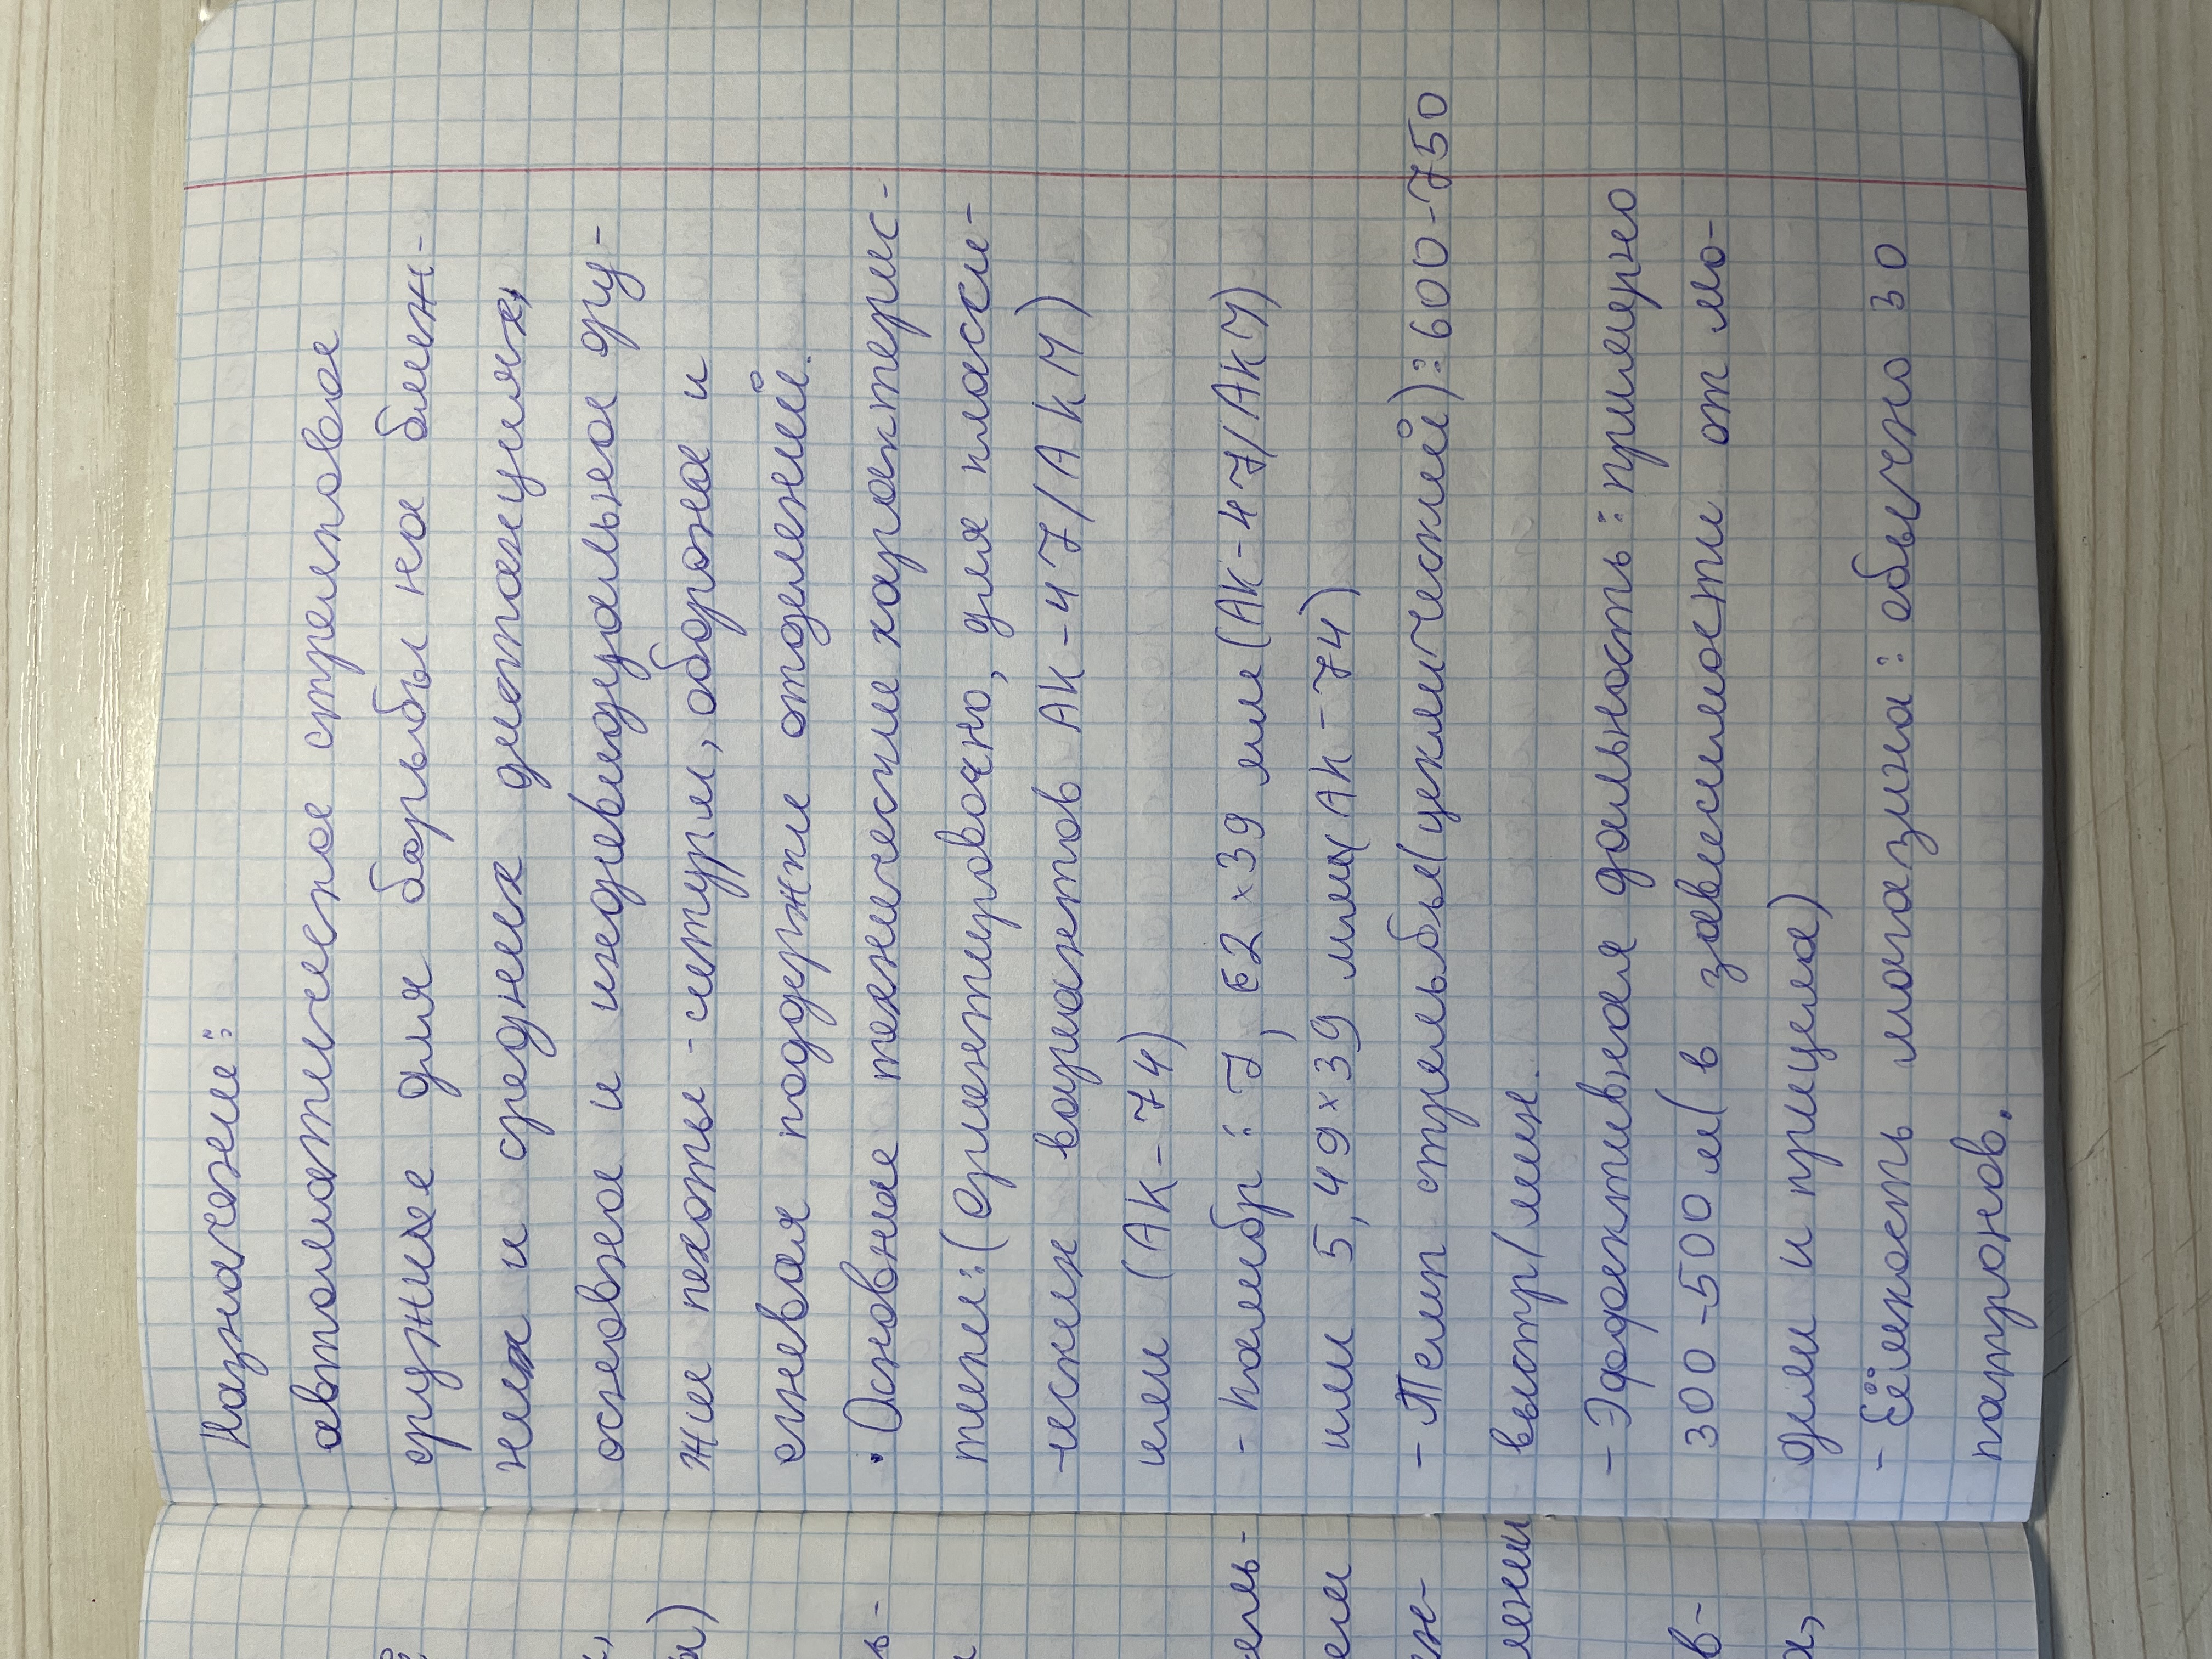 Назначение:
автоматическое стрелковое
оружие для борьбы на ближ-
них и средних дистанциях,
основное и индивидуальное ору-
жие пехоты - штурм, оборона и
огневая поддержки отделений.
• Основные технические характерис-
тики: (Орментировочно, для класси-
ческих вариантов АК-47/АКМ)
или (АК-74)
- калибр: 7,62×39 мм (АК-47/АКМ)
или 5,49×39 мм (АК-74)
- Темп стрельбы (цеклический): 600-750
выстр/мин.
- Эффективная дальность: примерно
300-500 м (в зависимости от мо-
дели и прицела)
- Ёмкость магазина: обычно 30
патронов.